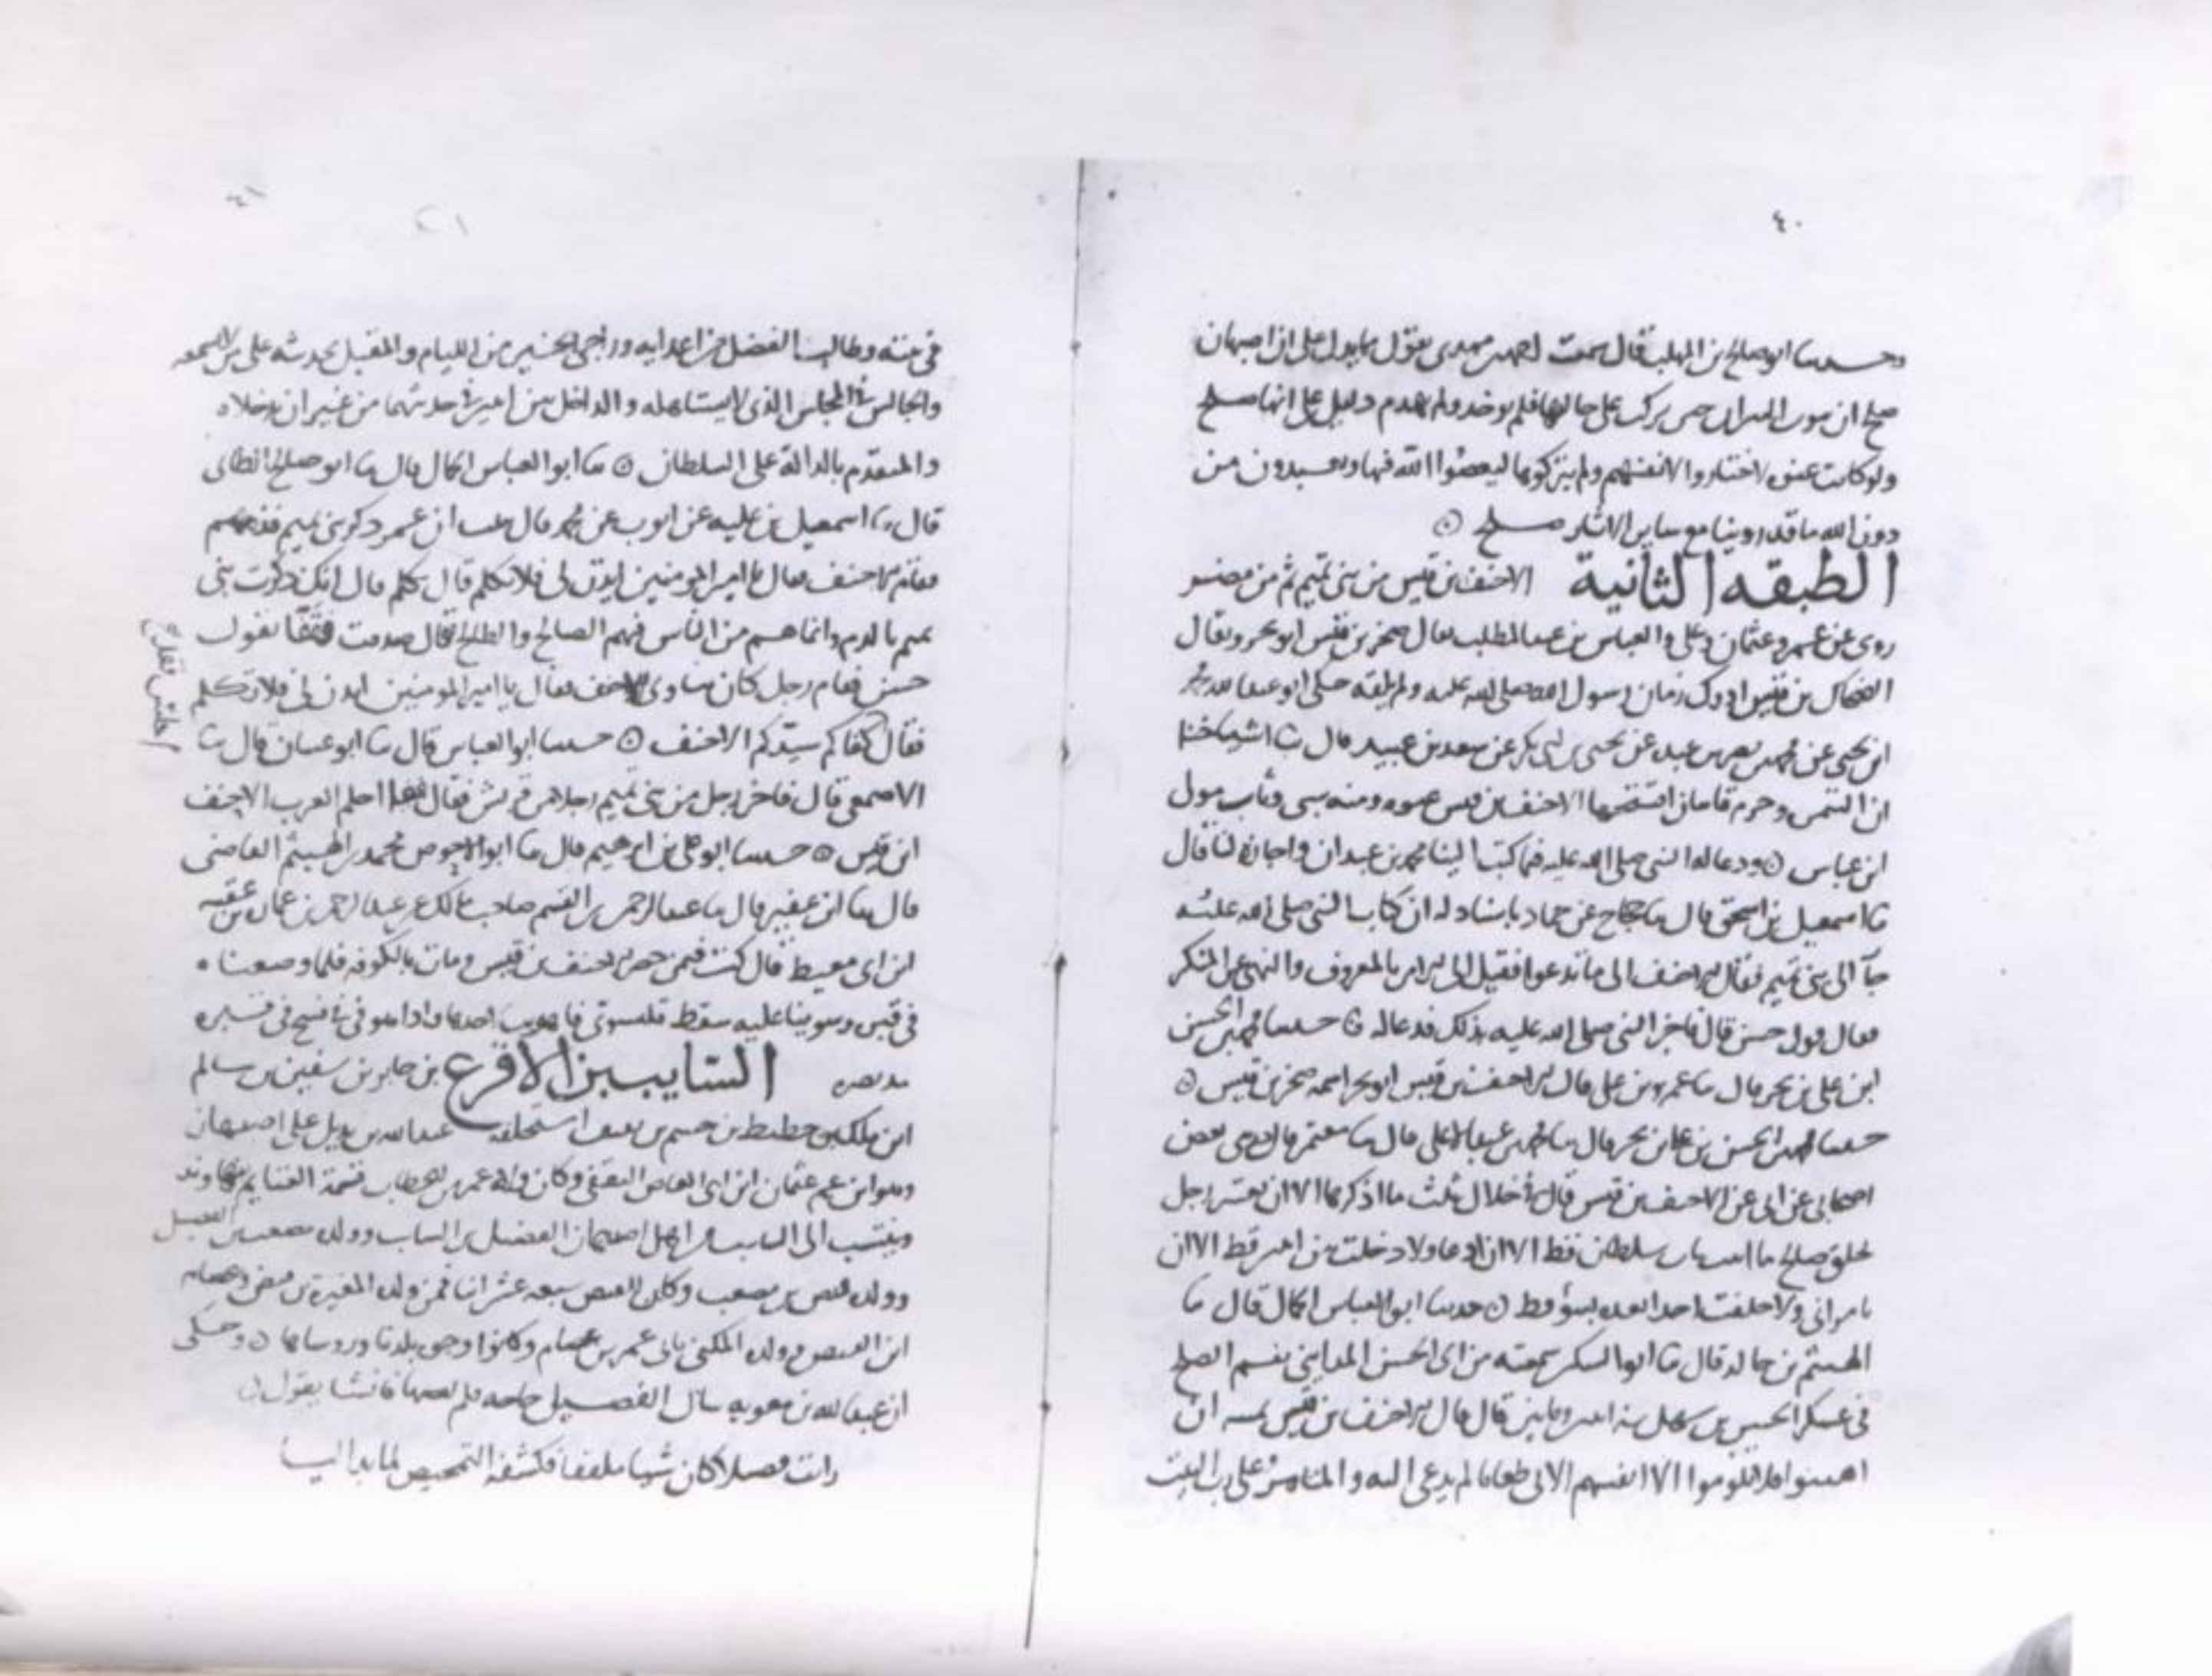 ٤٠
وحدسا ابو صالح بن المهلب قال سمعت احمد بن مهدى يقول مما يدل على ان اصبهان
صلح ان بيوت النيران حين ترك على حالها فلم يوخذ ولم يهدم دليل على انها صلح
ولو كانت عنوه لاختاروا لانفسهم ولم يتركوها ليعصوا الله فيها ويعبدون من
دون الله ما قد روينا مع ساير الاثار صلح ٥
الطبقه الثانية الاحنف بن قيس من بنى تميم ثم من مضر
روى عن عمر وعثمان وعلى والعباس بن عبد المطلب يقال صخر بن قيس ابو بحر ويقال
الضحاك بن قيس ادرك زمان رسول الله صلى الله عليه ولم يلقه حكى ابو عبد الله محمد
ابن يحيى عن محمد بن نصر بن عبد عن يحيى بن ابى بكر عن سعد بن عبيد قال ثنا اشياخنا
ان التيمره وجرم قاسان افتتحها الاحنف بن قيس عنوه ومنه سبى وثاب مولى
ابن عباس ٥ ودعا له النبى صلى الله عليه فيما كتب الينا محمد بن عبدان واجازه لنا قال
ثنا اسمعيل بن اسحق قال ثنا حجاج عن حماد باسناد له ان كتاب النبى صلى الله عليه
جآ الى بنى تميم فقال الاحنف الى ما تدعوا فقيل الى الامر بالمعروف والنهى عن المنكر
فقال قول حسن قال فاخبر النبى صلى الله عليه بذلك فدعا له ٥ حدسا محمد بن الحسن
ابن على بن بحر قال ثنا عمرو بن على قال الاحنف بن قيس ابو بحر اسمه صخر بن قيس ٥
حدسا محمد بن الحسن بن على بن بحر قال ثنا محمد بن عبد الاعلى قال ثنا معتمر قال حدثنى بعض
اصحابى عن ابى عن الاحنف بن قيس قال فى خلال ثلث ما اذكرها الا ان يعتبر رجل
بخلق صالح ما اتيت باب سلطان قط الا ان ادعا ولا دخلت بين اثنين قط الا ان
يامرانى ولا خلفت احدا بعده بسوء قط ٥ حدسا ابو العباس الجمال قال ثنا
الهيثم بن خالد قال ثنا ابو السكر سمعته من ابى الحسن المداينى بفم الصلح
فى عسكر الحسن بن سهل سنه اثنين ومايتين قال قال الاحنف بن قيس ثمنيه ان
اهينوا فلا يلوموا الا انفسهم الاتى طعاما لم يدعى اليه والمتامر على رب البيت
٤١
فى بيته وطالب الفضل من اعدايه وراجى الخير من الليام والمقبل بحديثه على من لا يسمعه
والجالس فى المجلس الذى لا يستاهله والداخل بين اثنين فى حديثهما من غير ان يدخلاه
والمتقدم بالدالة على السلطان ٥ ثنا ابو العباس الجمال قال ثنا ابو صالح الطائى
قال ثنا اسمعيل بن عليه عن ايوب عن محمد قال نبيت ان عمر ذكر بنى تميم فذمهم
فقام الاحنف فقال يا امير المومنين ايذن لى فلاتكلم قال تكلم قال انك ذكرت بنى
تميم بالذم وانما هم من الناس فيهم الصالح والطالح فقال صدقت فقفا بقول
حسن فقام رجل كان يناوى الاحنف فقال يا امير المومنين ايذن لى فلاتكلم
فقال كفاكم سيدكم الاحنف ٥ حدسا ابو العباس قال ثنا ابو غسان قال ثنا
الاصمعى قال فاخر رجل من بنى تميم رجلا من قريش فقال احلم العرب الاحنف
ابن قيس ٥ حدسا ابو على بن ابرهيم قال ثنا ابو الاحوص محمد بن الهيثم القاضى
قال ثنا ابن عفير قال ثنا عبد الرحمن بن القسم صاحب مالك عن عبد الرحمن بن عماره بن عقبه
ابن ابى معيط قال كنت فيمن حضر الاحنف بن قيس ومات بالكوفه فلما وضعناه
فى قبره وسوينا عليه سقط قلنسوتى فاهويت لاخذها واذا هو فى تافسح فى قبره
مد بصره السايب بن الاقرع بن جابر بن سفين بن سالم
ابن ملك بن حطيط بن جشم بن ثقيف استخلفه عبد الله بن بديل على اصبهان
وهو ابن عم عثمان ابن ابى العاص الثقفى وكان ولاه عمر بن الخطاب قسمة الغنايم بنهاوند
وينتسب الى السايب من اهل اصبهان الفضيل بن السايب وولده مصعب بن الفضيل
وولده فيض بن مصعب وكان للفيض سبعه عشر ابنا فمن ولده المغيره بن فيض وعصام
ابن الفيض وولده المكنى بابى عمر بن عصام وكانوا وجوه بلدنا وروساها ٥ وحكى
ان عبد الله بن معويه سال الفضيل حاجه فلم يقضها فانشا يقول ٥
رايت فضيلا كان شيا ملففا فكشفه التمحيص لما بدا ليا